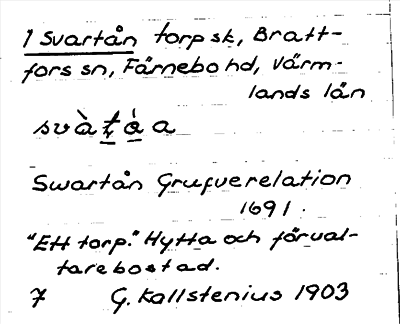 1 Svartån torp sk, Bratt-
fors sn, Färnebo hd, Värm-
lands län
svàt̲à̲a
Swartån Grufverelation
1691.
"Ett torp." Hytta och förval-
tarebostad.
7 G. Kallstenius 1903